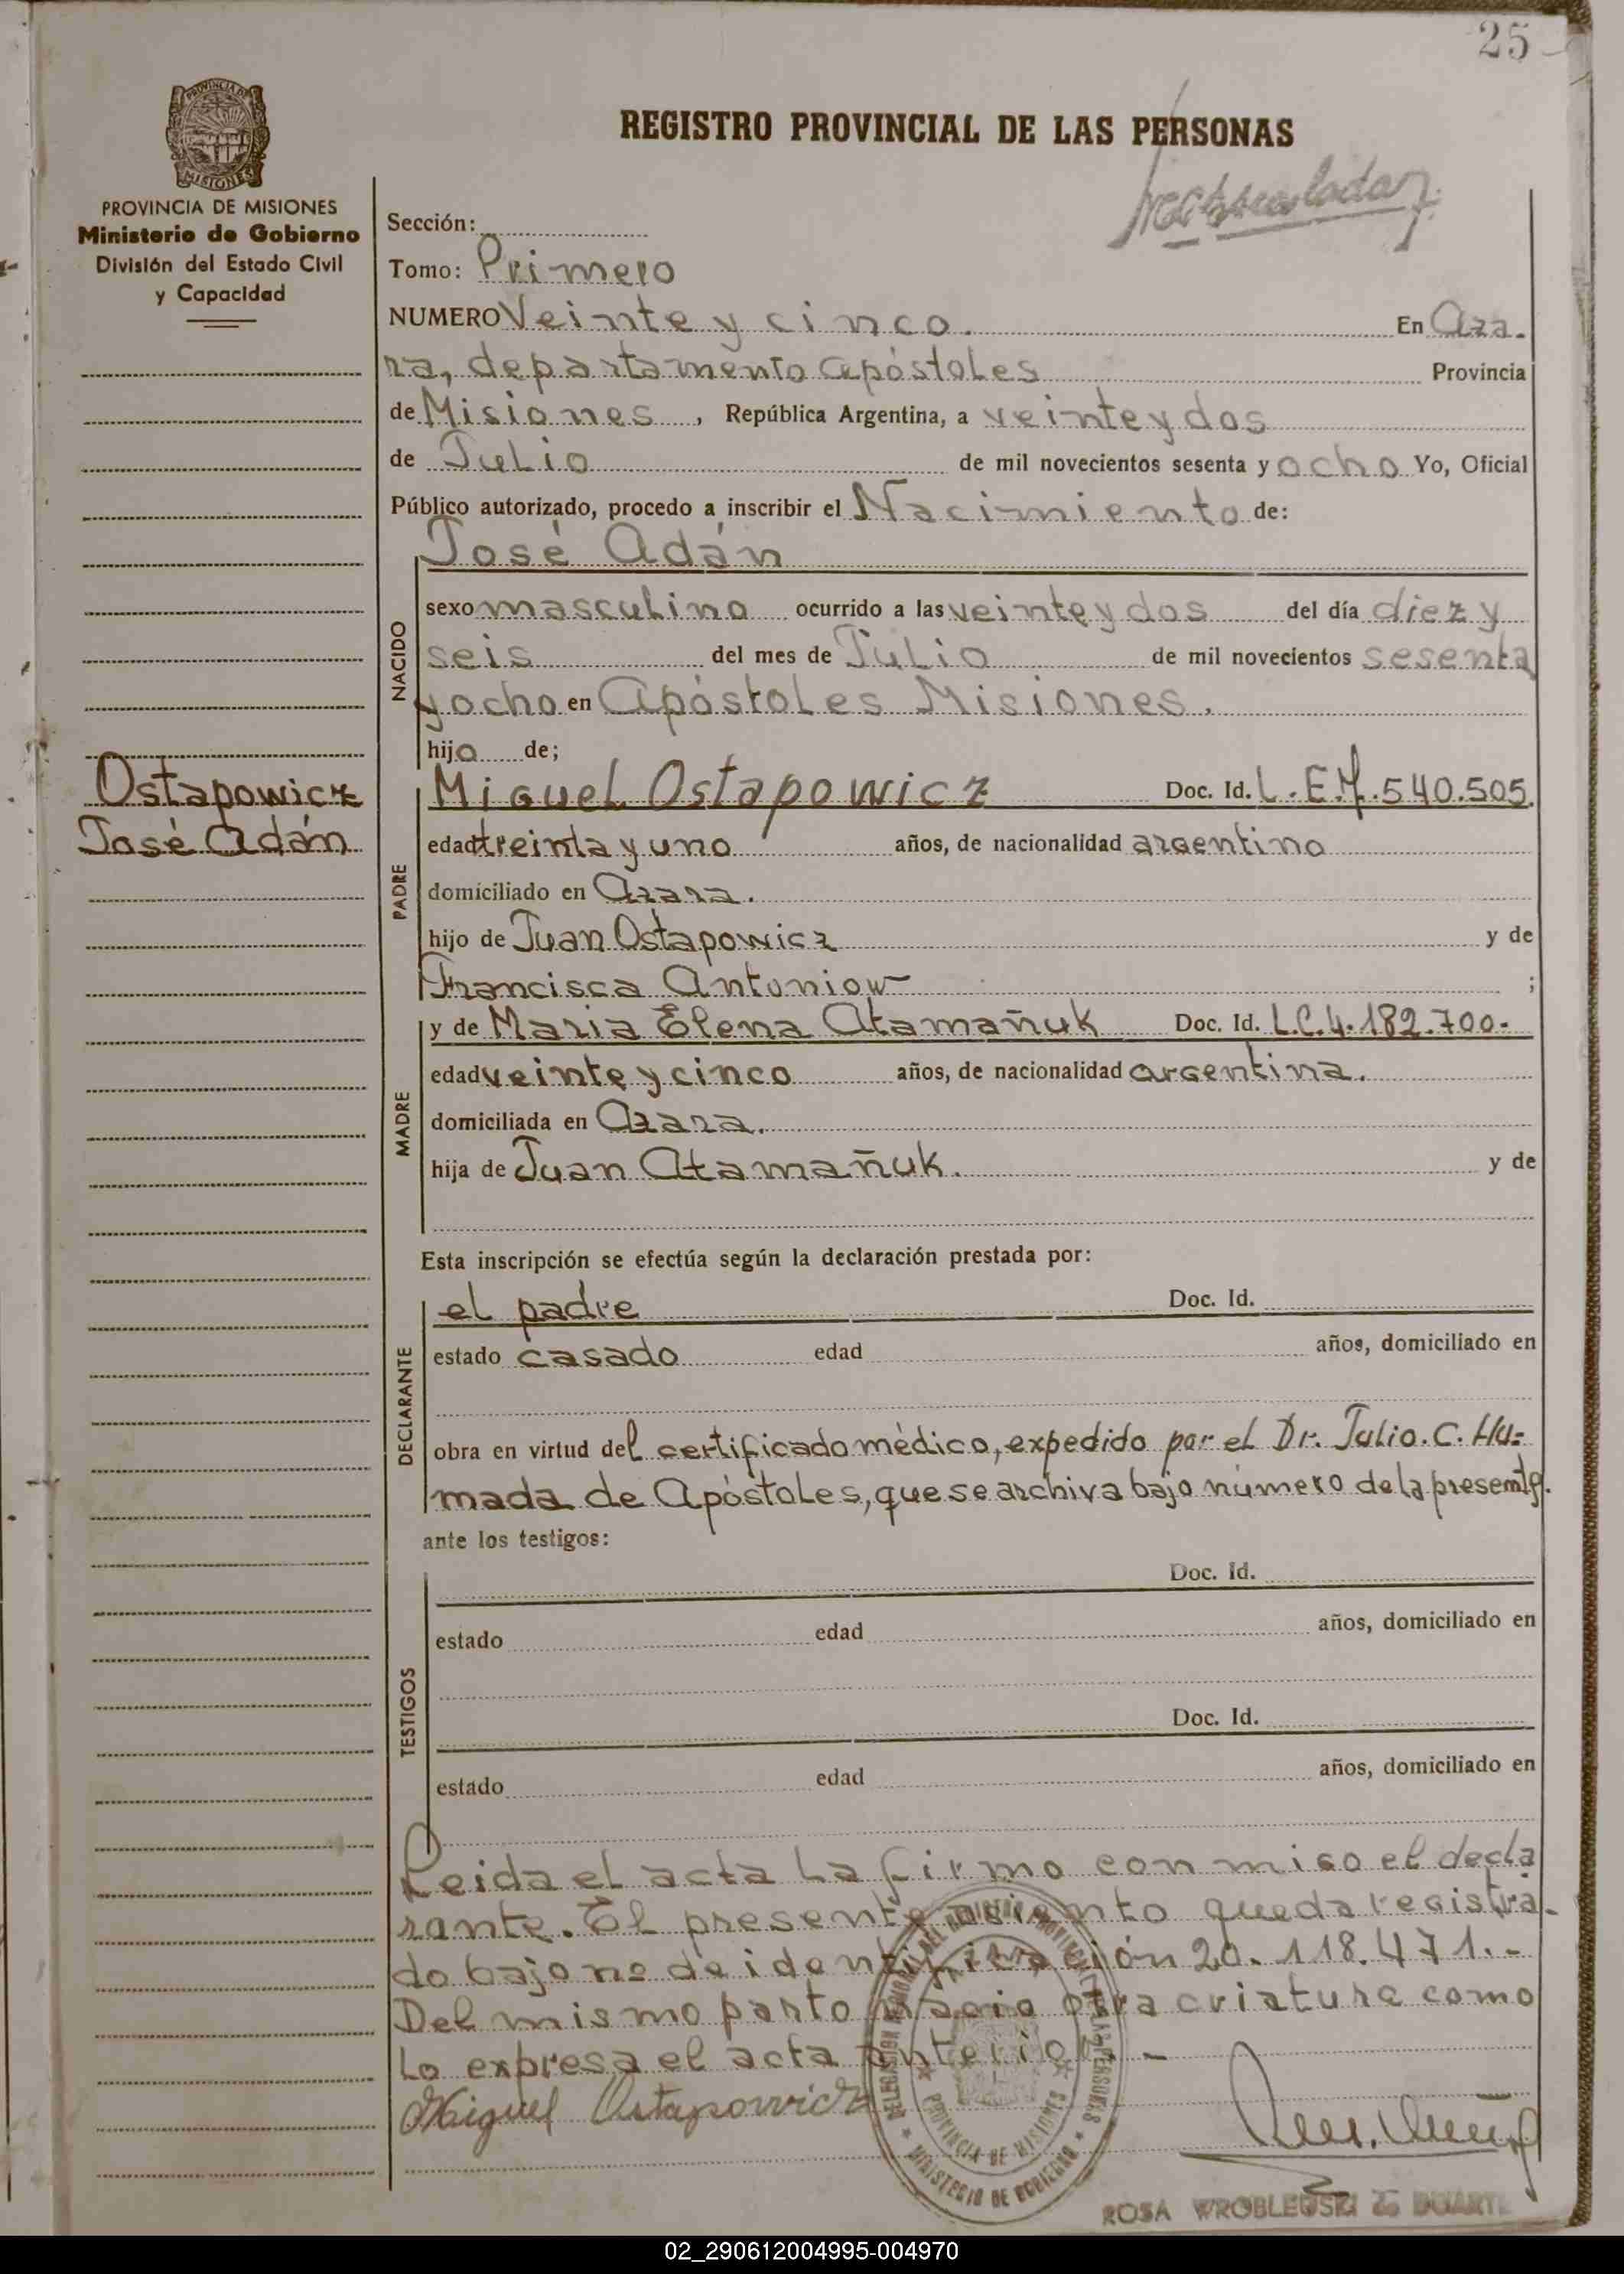 25
REGISTRO PROVINCIAL DE LAS PERSONAS
PROVINCIA DE MISIONES
Ministerio de Gobierno
División del Estado Civil
y Capacidad
Sección:
Tomo: Primero
NUMERO Veinte y cinco. En Aza-
ra, departamento Apóstoles Provincia
de Misiones, República Argentina, a veinte y dos
de Julio de mil novecientos sesenta y ocho Yo, Oficial
Público autorizado, procedo a inscribir el Nacimiento de:
José Adán
NACIDO
sexo masculino ocurrido a las veinte y dos del día diez y
seis del mes de Julio de mil novecientos sesenta
y ocho en Apóstoles Misiones.
hijo de;
Ostapowicz
José Adán
PADRE
Miguel Ostapowicz Doc. Id. L.E.7.540.505.
edad treinta y uno años, de nacionalidad argentino
domiciliado en Azara.
hijo de Juan Ostapowicz y de
Francisca Antoniow ;
MADRE
y de Maria Elena Atamañuk Doc. Id. L.C.4.182.700.-
edad veinte y cinco años, de nacionalidad argentina.
domiciliada en Azara.
hija de Juan Atamañuk. y de
Esta inscripción se efectúa según la declaración prestada por:
DECLARANTE
el padre Doc. Id.
estado casado edad años, domiciliado en
obra en virtud del certificado médico, expedido por el Dr. Julio. C. Hu-
mada de Apóstoles, que se archiva bajo número de la presente.
ante los testigos:
TESTIGOS
Doc. Id.
estado edad años, domiciliado en
Doc. Id.
estado edad años, domiciliado en
Leida el acta la firmo conmigo el decla
rante. El presente asiento queda registra-
do bajo no de identificación 20.118.471.-
Del mismo parto nacio otra criatura como
lo expresa el acta anterior.-
Miguel Ostapowicz
PROVINCIA DE MISIONES
MINISTERIO DE GOBIERNO
ROSA WROBLEWSKI de DUARTE
02_290612004995-004970